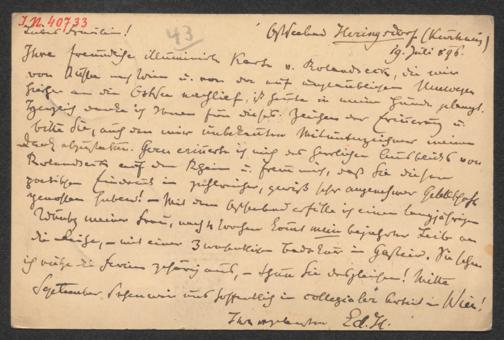 I.N. 40733
43
Liebes Fräulein! Ostseebad Heringsdorf (Kurhaus)
19. Juli 896.
Ihre freundliche illuminirte Karte v. Rolandseck, die mir
von Aussee nach Wien u. von da auf unglaublichen Umwegen
hieher an die Ostsee nachlief, ist heute in meine Hände gelangt.
Herzlich danke ich Ihnen für dieses Zeichen der Erinnerung u.
bitte Sie, auch den mir unbekannten Mitunterzeichner meinen
Dank abzustatten. Gern erinnerte ich mich des herrlichen Ausblicks von
Rolandseck auf den Rhein u. freue mich, daß Sie diesen
poetischen Eindruck in zahlreicher, gewiß sehr angenehmer Gesellschaft
genossen haben! – Mit dem Ostseebad erfülle ich einen langjährigen
Wunsch meiner Frau, nach 4 Wochen kommt mein Leib an
die Reihe, – mit einer 3 wöchentlichen Badekur in Gastein. Sie sehen
ich nütze die Ferien gehörig aus, – thun Sie desgleichen! Mitte
September sehen wir uns hoffentlich in collegialer Arbeit in Wien!
Ihr ergebenster Ed. H.